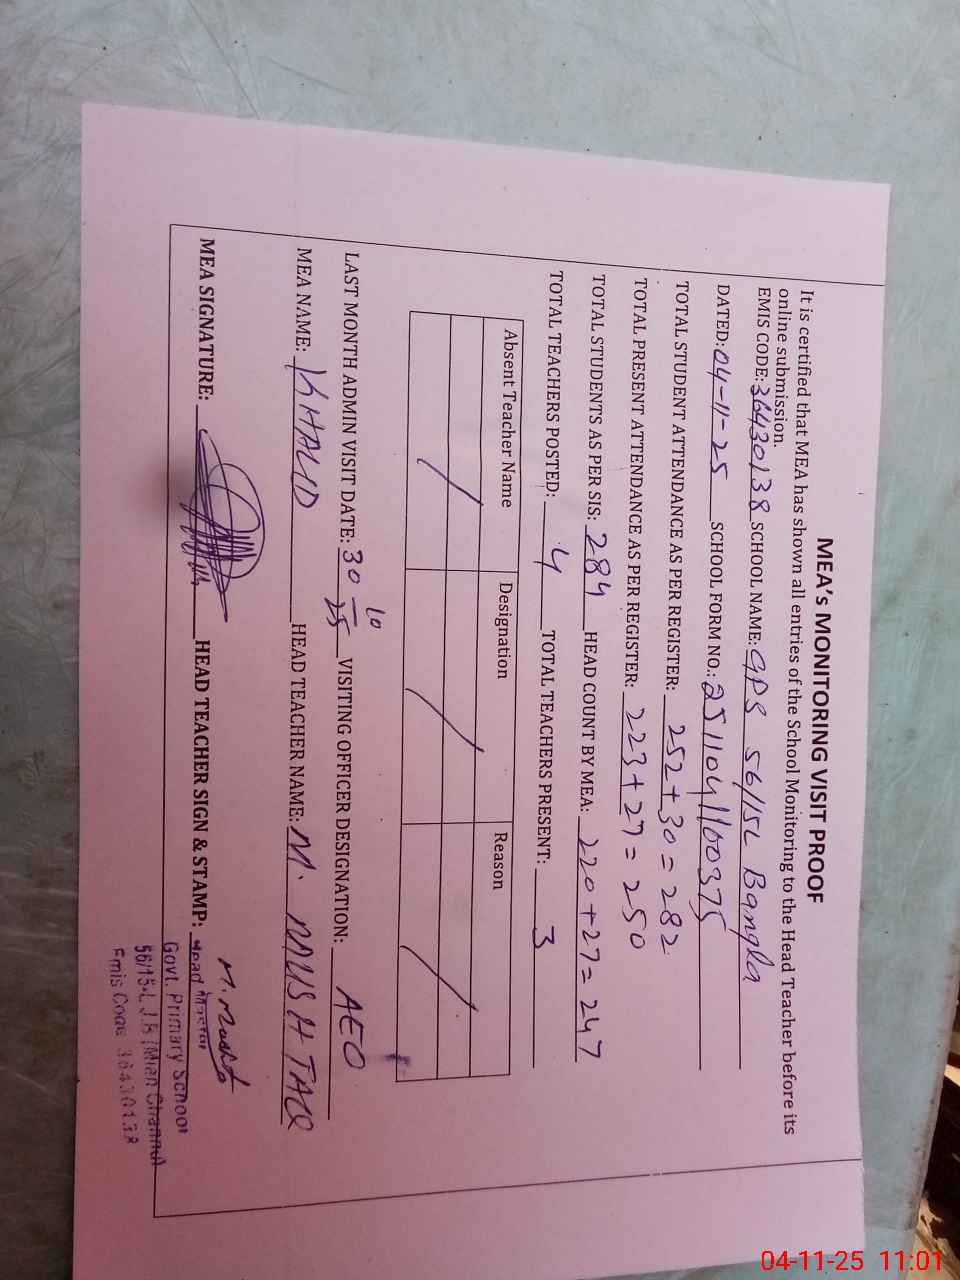 MEA's MONITORING VISIT PROOF
It is certified that MEA has shown all entries of the School Monitoring to the Head Teacher before its
online submission.
EMIS CODE: 36430138 SCHOOL NAME: GPS 56/15L Bangla
DATED: 04-11-25 SCHOOL FORM NO.: 2511041160375
TOTAL STUDENT ATTENDANCE AS PER REGISTER: 252+30=282
TOTAL PRESENT ATTENDANCE AS PER REGISTER: 223+27=250
TOTAL STUDENTS AS PER SIS: 284 HEAD COUNT BY MEA: 220+27=247
TOTAL TEACHERS POSTED: 4 TOTAL TEACHERS PRESENT: 3
Absent Teacher Name Designation Reason
/ / /
LAST MONTH ADMIN VISIT DATE: 30-10-25 VISITING OFFICER DESIGNATION: AEO
MEA NAME: KHALID HEAD TEACHER NAME: M. MUSHTAQ
MEA SIGNATURE: HEAD TEACHER SIGN & STAMP: M. Mushtaq
Head Master
Govt. Primary School
56/15-L J.B (Mian Channu)
Emis Code 36430138
04-11-25 11:01